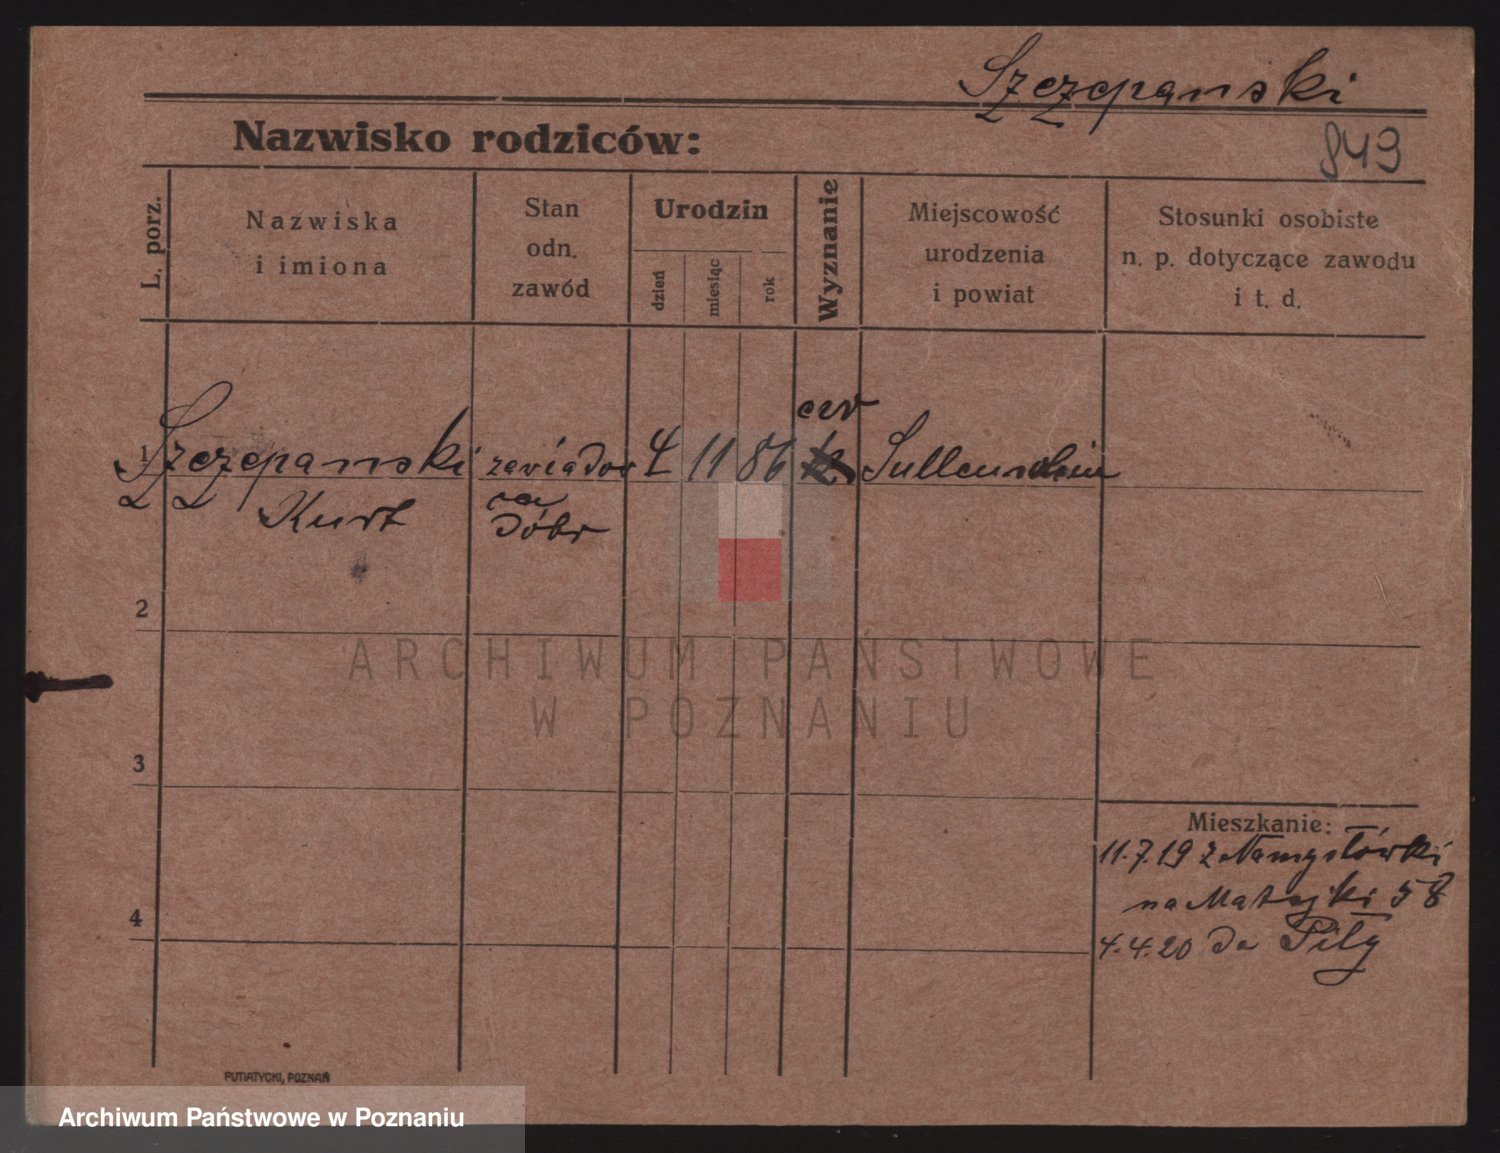 Szczepanski
849
Nazwisko rodziców:
L. porz.
Nazwiska
i imiona
Stan
odn.
zawód
Urodzin
dzień
miesiąc
rok
Wyznanie
Miejscowość
urodzenia
i powiat
Stosunki osobiste
n. p. dotyczące zawodu
i t. d.
ew
1 Szczepanski zawiadow 4 11 86
Kurt
ca
dóbr
2
ARCHIWUM PAŃSTWOWE
W POZNANIU
3
Mieszkanie:
11.7.19 z Namysłówki
na Matejki 58
4
4.4.20 do Piły
PUTIATYCKI, POZNAŃ
Archiwum Państwowe w Poznaniu